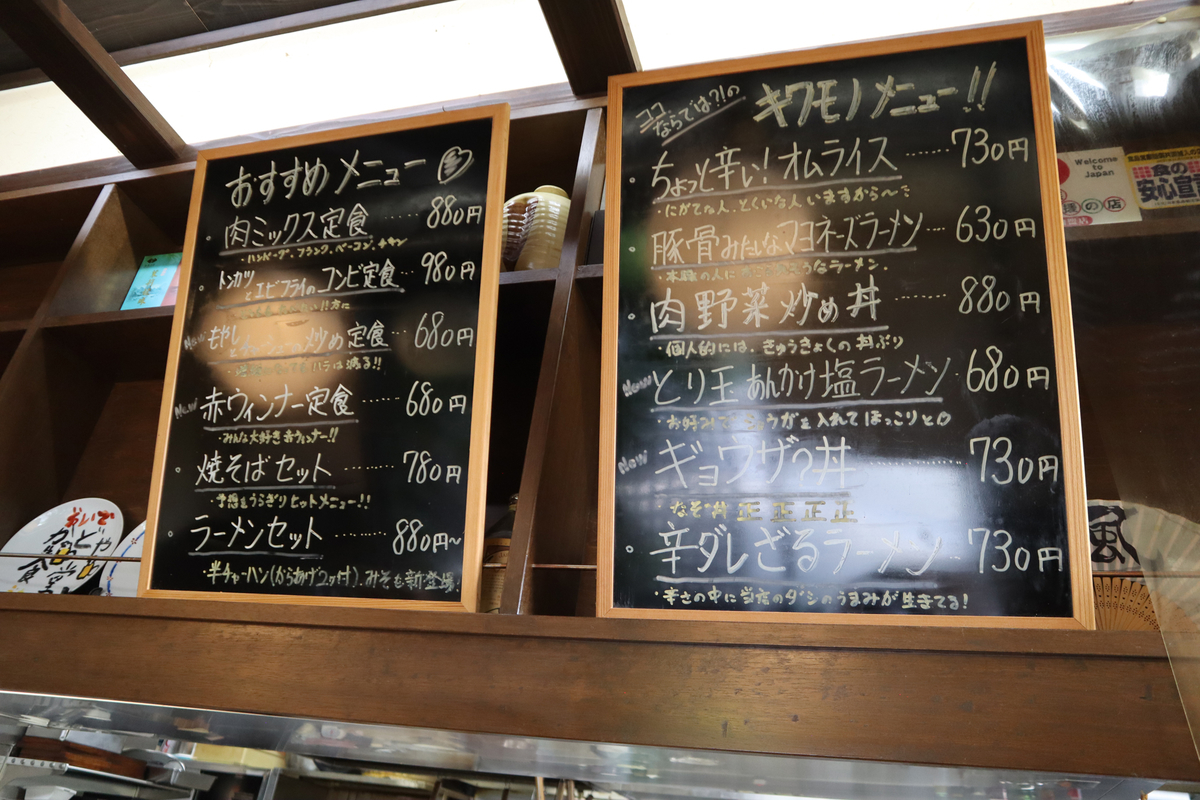 おすすめメニュー
・肉ミックス定食 ‥‥‥ 880円
・ハンバーグ、フランク、ベーコン、チキン
・トンカツとエビフライのコンビ定食 ‥ 980円
New もやしと 炒め定食 ‥ 680円
New 赤ウィンナー定食 ‥‥ 680円
・みんな大好き赤ウィンナー!!
・焼そばセット ‥‥‥‥ 780円
・予想をうらぎりヒットメニュー!!
・ラーメンセット ‥‥‥‥ 880円〜
・半チャーハン(からあげ2ヶ付)、みそも新登場
ココならでは?!の キワモノメニュー!!
・ちょっと辛い!オムライス ‥‥‥ 730円
・にがてな人、とくいな人いますから〜
・豚骨みたいなマヨネーズラーメン ‥ 630円
・本職の人に ようなラーメン.
・肉野菜炒め丼 ‥‥‥ 880円
・個人的には、きゅうきょくの丼ぶり
New とり玉あんかけ塩ラーメン 680円
・お好みで ショウガを入れてほっこりと
New ギョウザ?丼 ‥‥‥‥ 730円
・なぞ丼 正 正 正 正
・辛ダレざるラーメン ‥ 730円
・辛さの中に当店のダシのうまみが生きてる!
Welcome to Japan
の店
食の安心宣
おいで
かどや
食堂
風